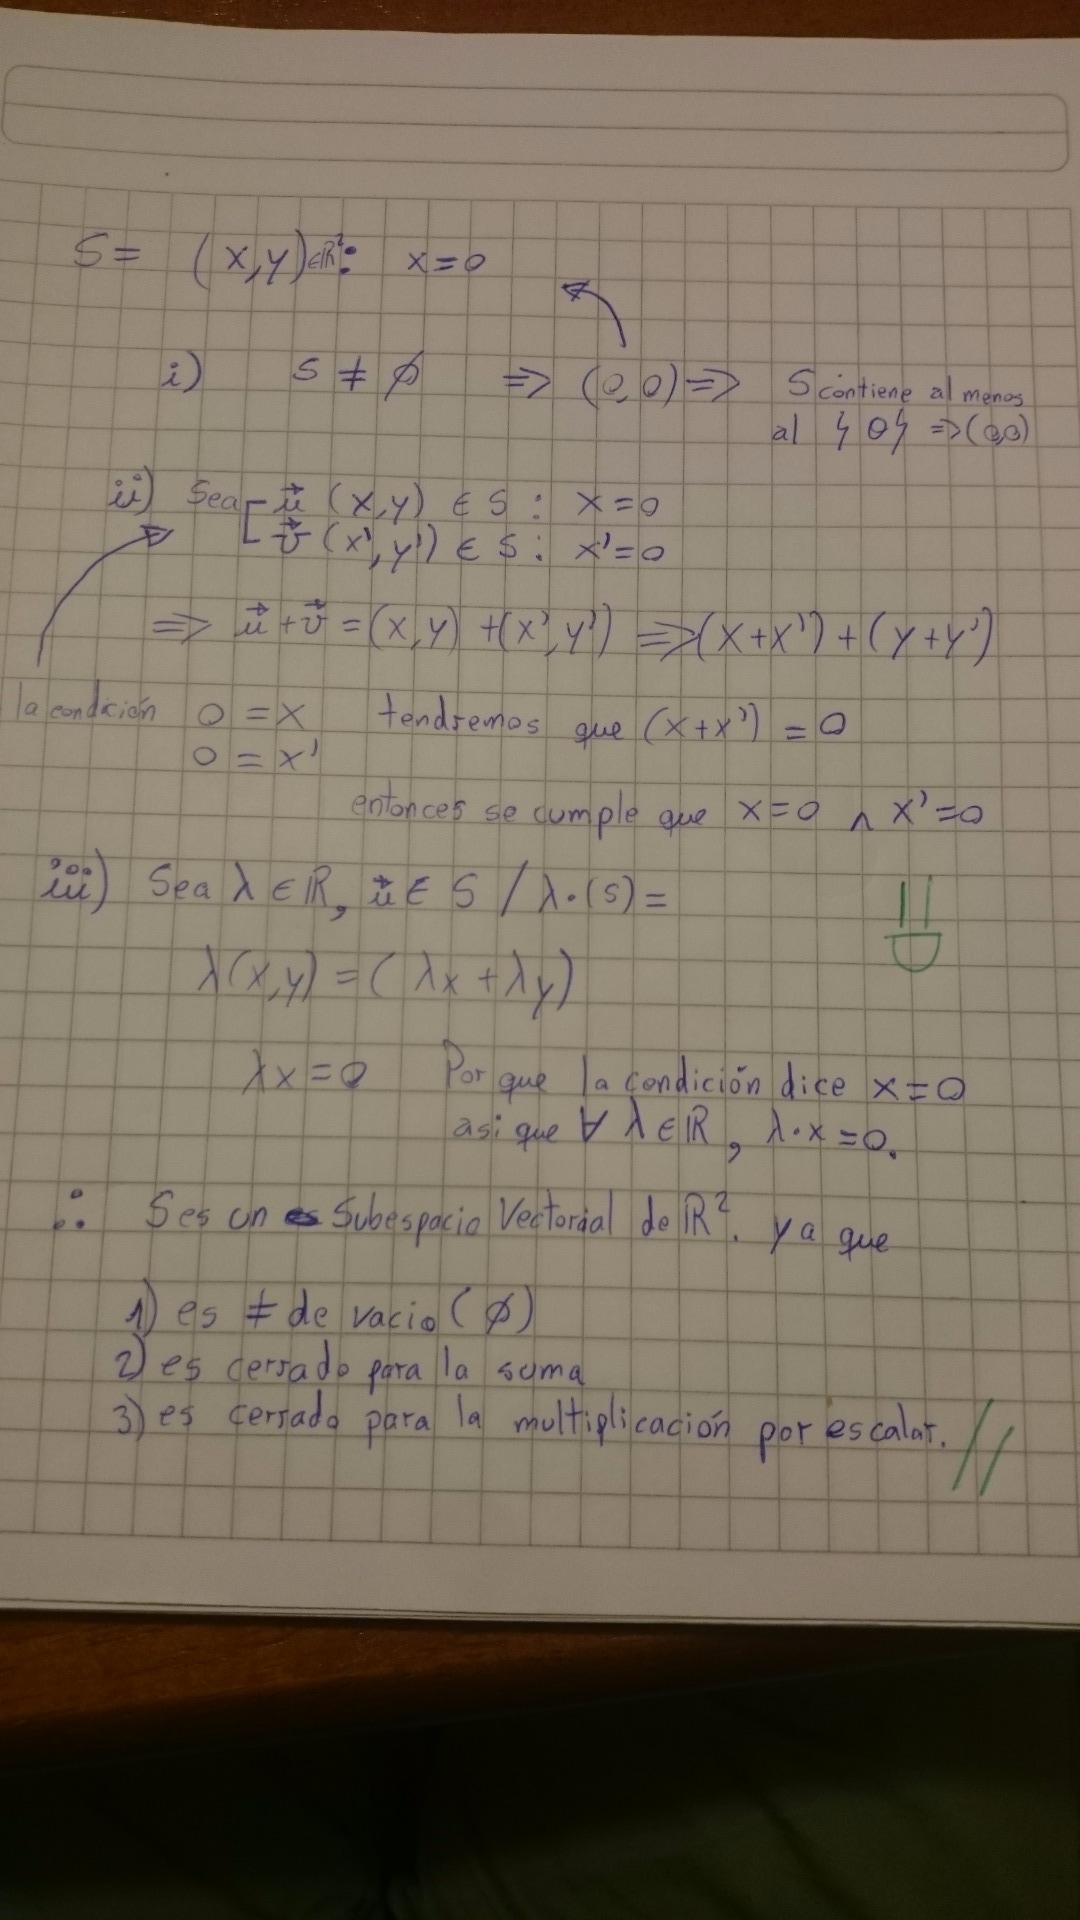 S = (x,y)∈ℝ²: x=0
i) S ≠ ∅ => (0,0) => S contiene al menos
al {0} =>(0,0)
ii) Sea [ u⃗ (x,y) ∈ S : x=0
v⃗ (x',y') ∈ S : x'=0
=> u⃗+v⃗ = (x,y) + (x',y') => (x+x') + (y+y')
la condición 0 = x tendremos que (x+x') = 0
0 = x'
entonces se cumple que x=0 ∧ x'=0
iii) Sea λ ∈ ℝ, u⃗ ∈ S / λ·(s) =
λ(x,y) = ( λx + λy)
λx = 0 Por que la condición dice x=0
asi que ∀ λ ∈ ℝ, λ·x = 0.
∴ S es un es Subespacio Vectorial de ℝ². ya que
1) es ≠ de vacio (∅)
2) es cerrado para la suma
3) es cerrado para la multiplicación por escalar. //